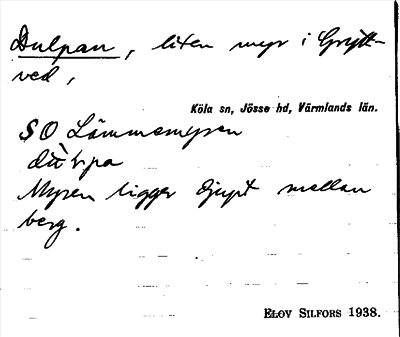 Dulpan, liten myr i Grytt-
ved,
Köla sn, Jösse hd, Värmlands län.
SO Lämmemyren
Myren ligger djupt mellan
berg.
ELOV SILFORS 1938.